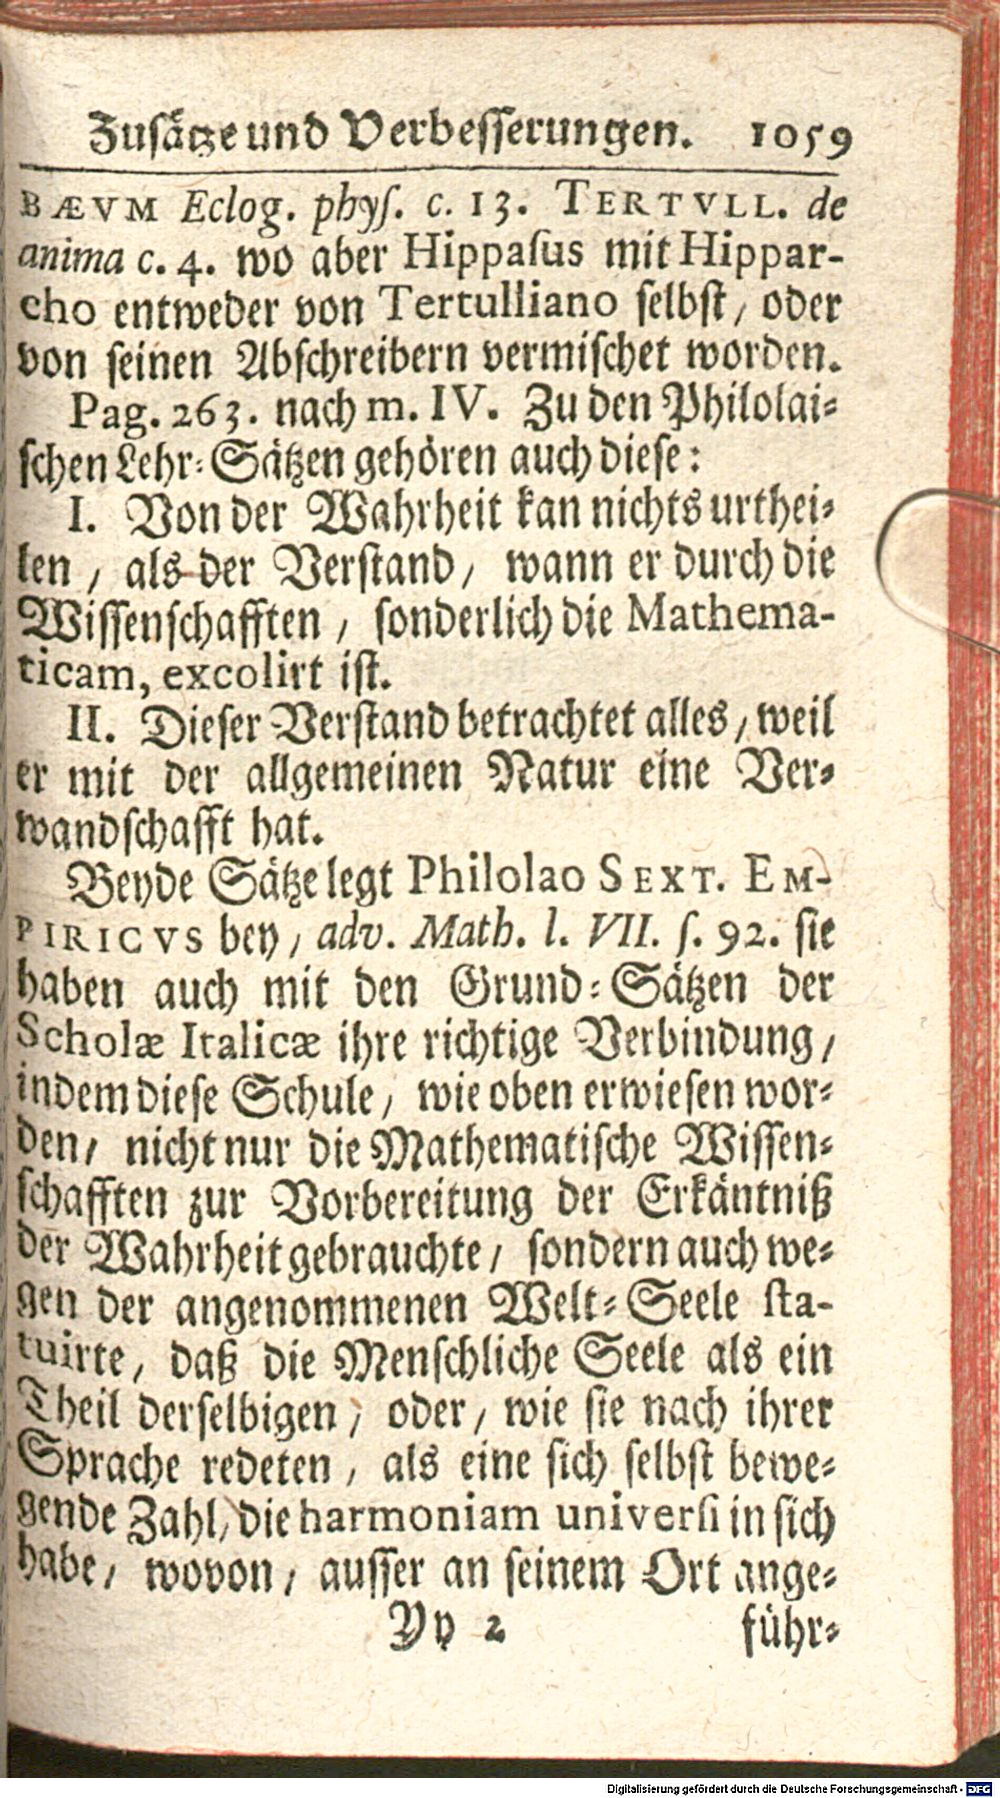 Zusätze und Verbesserungen. 1059
BÆVM Eclog. phyſ. c. 13. TERTVLL. de
anima c. 4. wo aber Hippaſus mit Hippar-
cho entweder von Tertulliano ſelbſt, oder
von ſeinen Abſchreibern vermiſchet worden.
Pag. 263. nach m. IV. Zu den Philolai-
ſchen Lehr-Sätzen gehören auch dieſe:
I. Von der Wahrheit kan nichts urthei-
len, als der Verſtand, wann er durch die
Wiſſenſchafften, ſonderlich die Mathema-
ticam, excolirt iſt.
II. Dieſer Verſtand betrachtet alles, weil
er mit der allgemeinen Natur eine Ver-
wandſchafft hat.
Beyde Sätze legt Philolao SEXT. EM-
PIRICVS bey, adv. Math. l. VII. ſ. 92. ſie
haben auch mit den Grund-Sätzen der
Scholæ Italicæ ihre richtige Verbindung,
indem dieſe Schule, wie oben erwieſen wor-
den, nicht nur die Mathematiſche Wiſſen-
ſchafften zur Vorbereitung der Erkäntniß
der Wahrheit gebrauchte, ſondern auch we-
gen der angenommenen Welt-Seele ſta-
tuirte, daß die Menſchliche Seele als ein
Theil derſelbigen, oder, wie ſie nach ihrer
Sprache redeten, als eine ſich ſelbſt bewe-
gende Zahl, die harmoniam univerſi in ſich
habe, wovon, auſſer an ſeinem Ort ange-
Yy 2 führ-
Digitalisierung gefördert durch die Deutsche Forschungsgemeinschaft - DFG